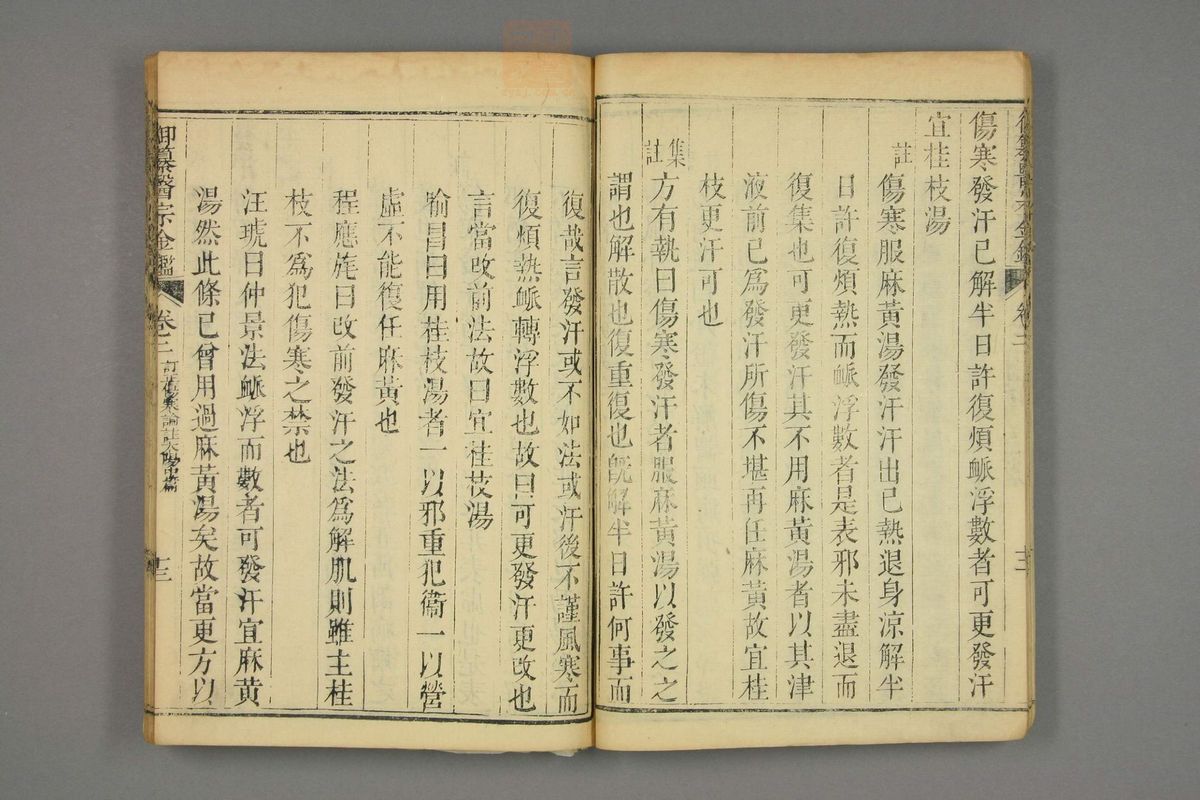 傷寒發汗已解半日許復煩䘑浮數者可更發汗
宜桂枝湯
註 傷寒服麻黃湯發汗汗出已熱退身涼解半
日許復煩熱而䘑浮數者是表邪未盡退而
復集也可更發汗其不用麻黃湯者以其津
液前已爲發汗所傷不堪再任麻黃故宜桂
枝更汗可也
集註 方有執曰傷寒發汗者服麻黃湯以發之之
謂也解散也復重復也旣解半日許何事而
復哉言發汗或不如法或汗後不謹風寒而
復煩熱䘑轉浮數也故曰可更發汗更改也
言當改前法故曰宜桂枝湯
喻昌曰用桂枝湯者一以邪重犯衞一以營
虛不能復任麻黃也
程應旄曰改前發汗之法爲解肌則雖主桂
枝不爲犯傷寒之禁也
汪琥曰仲景法䘑浮而數者可發汗宜麻黃
湯然此條已曾用過麻黃湯矣故當更方以
御纂醫宗金鑑 卷二 訂正傷寒論註太陽中篇 十三